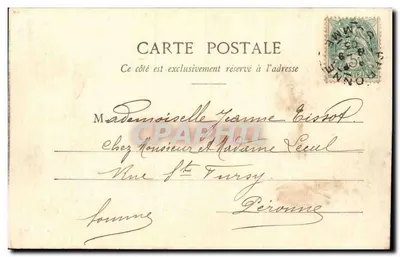 CARTE POSTALE
Ce côté est exclusivement réservé à l'adresse
Mademoiselle Jeanne Tissot
chez Monsieur et Madame Leeul
Rue St Fursy
Péronne
Somme
CRAPHI